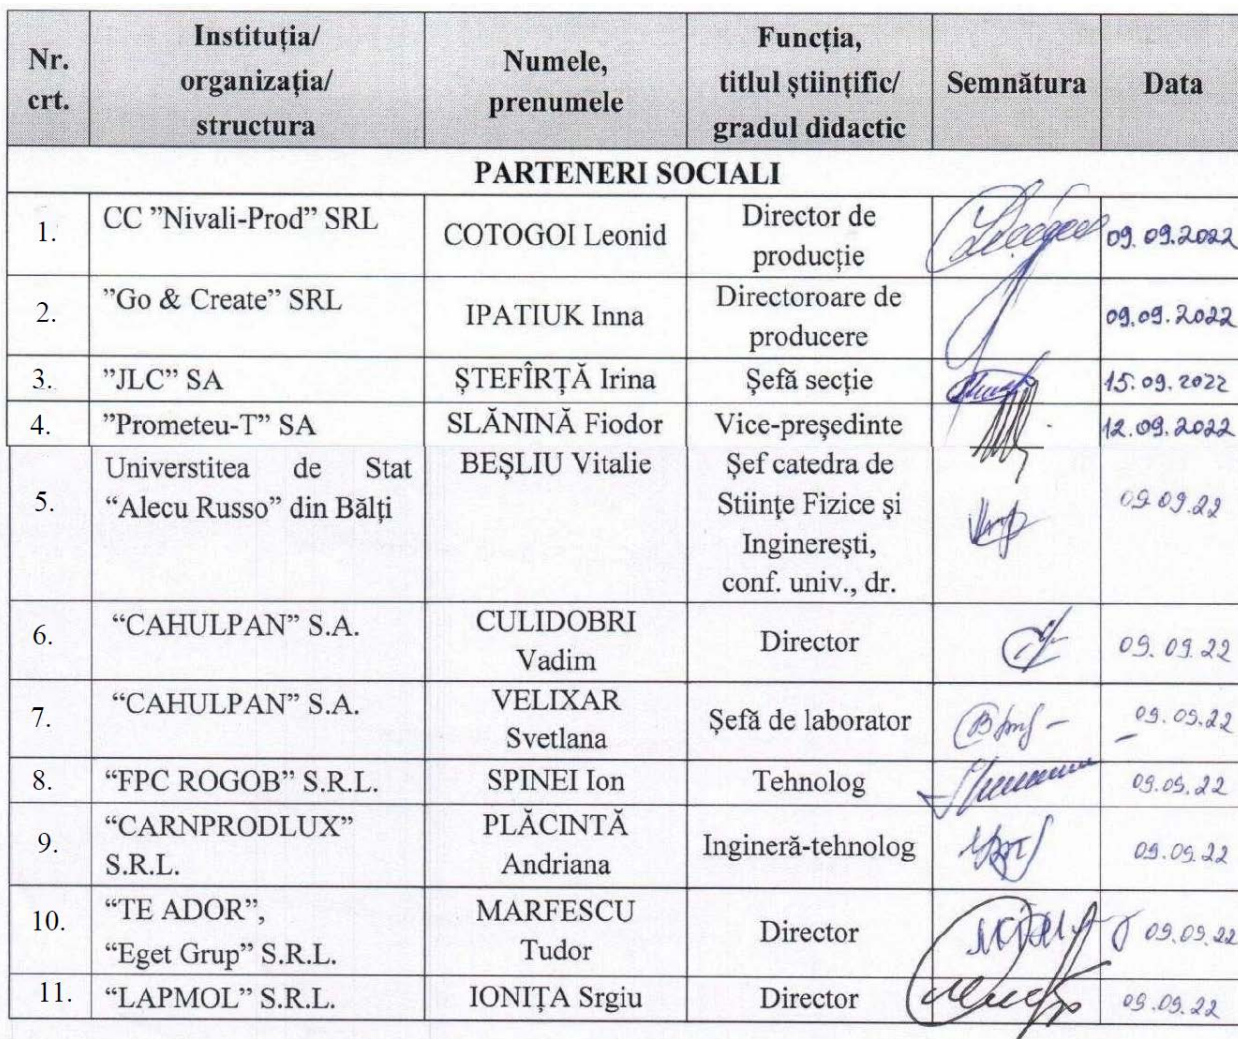 Nr. crt.
Instituția/ organizația/ structura
Numele, prenumele
Funcția, titlul științific/ gradul didactic
Semnătura
Data
PARTENERI SOCIALI
1.
CC ”Nivali-Prod” SRL
COTOGOI Leonid
Director de
producție
09.09.2022
2.
”Go & Create” SRL
IPATIUK Inna
Directoroare de
producere
09.09.2022
3.
”JLC” SA
ȘTEFÎRȚĂ Irina
Șefă secție
15.09.2022
4.
”Prometeu-T” SA
SLĂNINĂ Fiodor
Vice-președinte
12.09.2022
5.
Universtitea de Stat
“Alecu Russo” din Bălți
BEȘLIU Vitalie
Șef catedra de
Stiințe Fizice și
Inginerești,
conf. univ., dr.
09.09.22
6.
“CAHULPAN” S.A.
CULIDOBRI
Vadim
Director
09.09.22
7.
“CAHULPAN” S.A.
VELIXAR
Svetlana
Șefă de laborator
09.09.22
8.
“FPC ROGOB” S.R.L.
SPINEI Ion
Tehnolog
09.09.22
9.
“CARNPRODLUX”
S.R.L.
PLĂCINTĂ
Andriana
Ingineră-tehnolog
09.09.22
10.
“TE ADOR”,
“Eget Grup” S.R.L.
MARFESCU
Tudor
Director
09.09.22
11.
“LAPMOL” S.R.L.
IONIȚA Srgiu
Director
09.09.22